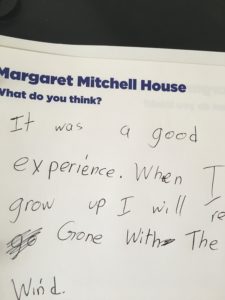 Margaret Mitchell House
What do you think?
It was a good
experience. When I
grow up I will re
Gone With The
Wind.